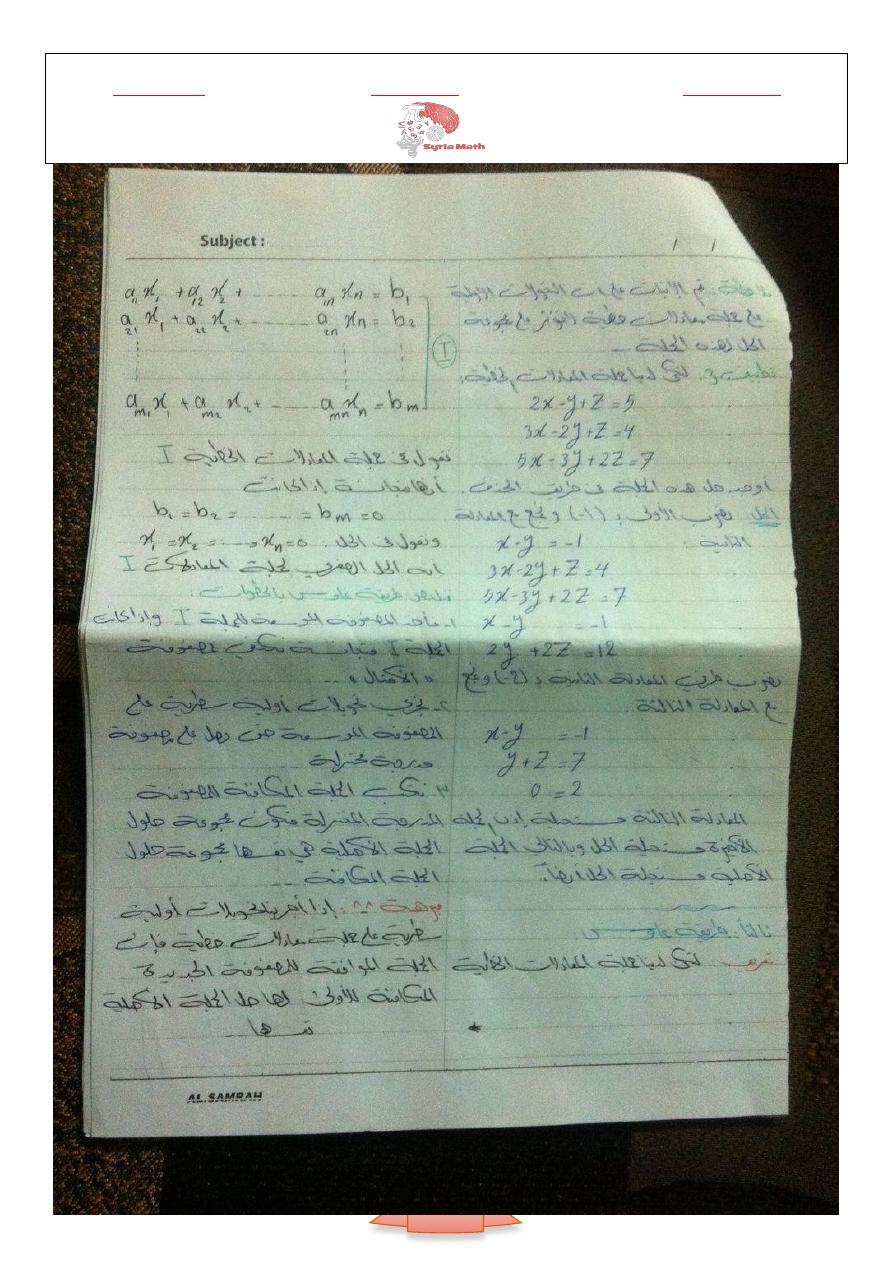 Syria Math
Subject :
/ /
ملاحظة: تم الإثبات على أن التحويلات الأولية
على جملة معادلات خطية لا تؤثر على مجموعة
الحل لهذه الجملة ...
تطبيق 3. لتكن لدينا جملة المعادلات الخطية:
2x-y+z=5
3x-2y+z=4
5x-3y+2z=7
أوجد حل هذه الجملة في طريقة الحذف.
الحل نضرب الأولى بـ (-1) ونجمع مع المعادلة
الثانية: x-y = -1
3x-2y+z=4
5x-3y+2z=7
x-y = -1
2y +2z=12
نضرب طرفي المعادلة الثانية بـ (-2) ونجمع
مع المعادلة الثالثة.
x-y = -1
y+z=7
0=2
المعادلة الثالثة مستحيلة إذن جملة
الأخيرة مستحيلة الحل وبالتالي الجملة
الأصلية مستحيلة الحل أيضاً.
ثالثاً. طريقة غاوس.
تعريف: لتكن لدينا جملة المعادلات الخطية
a₁₁x₁ + a₁₂x₂ + ........ a₁ₙxₙ = b₁
a₂₁x₁ + a₂₂x₂ + ........ a₂ₙxₙ = b₂
I
aₘ₁x₁ + aₘ₂x₂ + ...... aₘₙxₙ = bₘ
نقول في جملة المعادلات الخطية I
أنها متجانسة إذا كانت
b₁ = b₂ = ........ = bₘ = 0
ونقول في الحل: x₁ = x₂ = ...... xₙ = 0
انه الحل الصفري لجملة المعادلات I
نلخص طريقة غاوس بالخطوات:
١- نأخذ المصفوفة الموسعة للجملة I وإذا كانت
الجملة I متجانسة نكتفي بمصفوفة
«الأمثال» ...
٢- نجري تحويلات أولية سطرية على
المصفوفة الموسعة حتى نحصل على مصفوفة
مدرجة مختزلة
٣- نكتب الجملة المكافئة للمصفوفة
المدرجة المختزلة فتكون مجموعة حلول
الجملة الأصلية هي نفسها مجموعة حلول
الجملة المكافئة ...
مبرهنة : إذا أجرينا تحويلات أولية
سطرية على جملة معادلات خطية فإن
الجملة الموافقة للمصفوفة الجديدة
المكافئة للأولى لها حل الجملة الأصلية
نفسها ...
AL SAMRAH